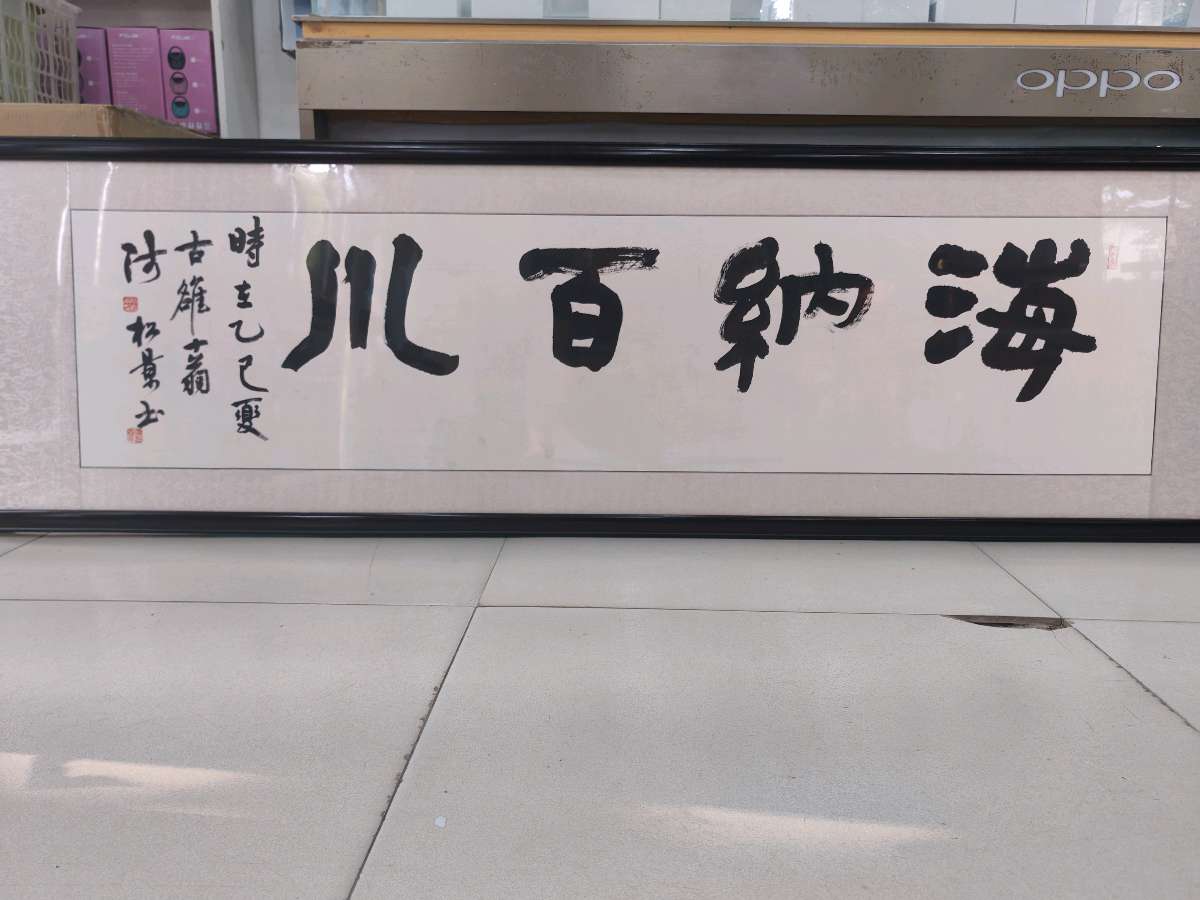 OPPO
海納百川
時在乙巳夏
古雒翁
陈松景书